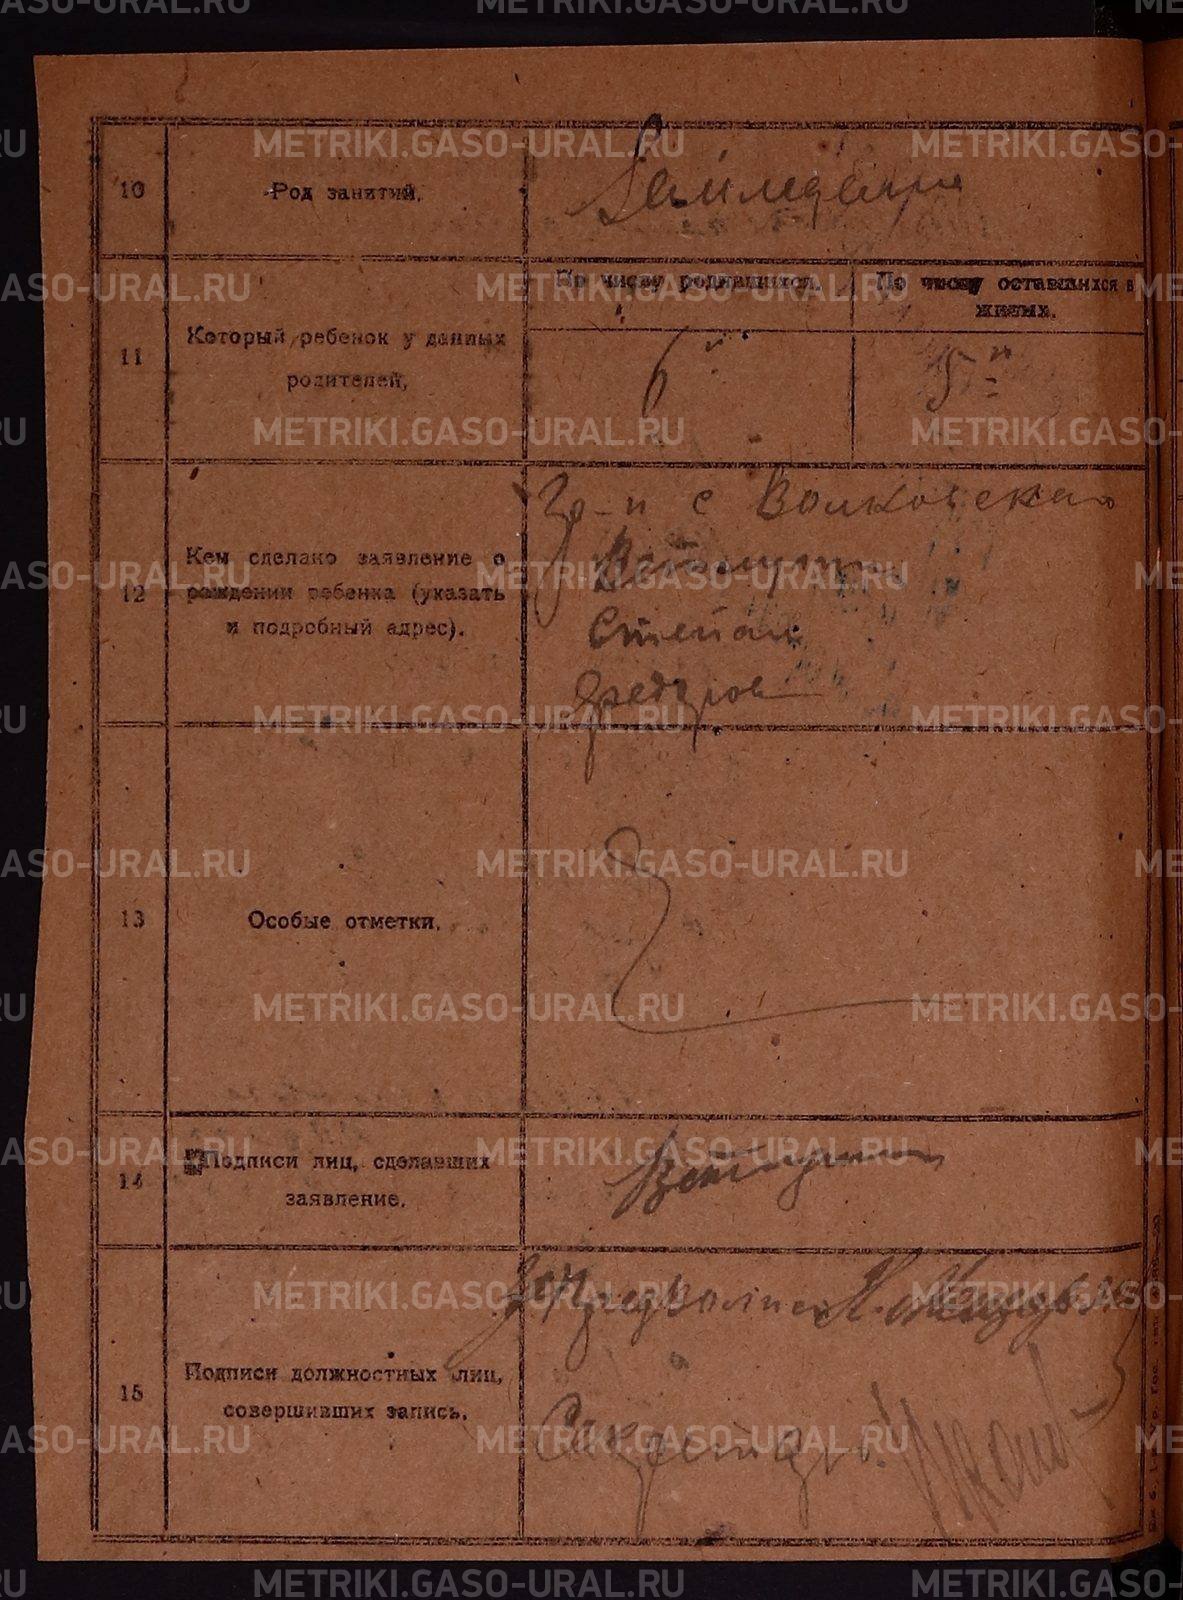 METRIKI.GASO-URAL.RU
10
Род занятий.
11
Который ребенок у данных
родителей,
По числу родившихся.
По числу оставшихся в
живых.
6й
5й
12
Кем сделано заявление о
рождении ребенка (указать
и подробный адрес).
Гр-н с Волковского
Степан
Федоров
13
Особые отметки.
14
Подписи лиц, сделавших
заявление.
15
Подписи должностных лиц,
совершивших запись.
Секретарь